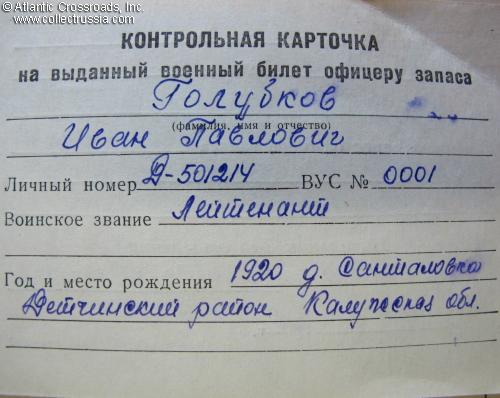 © Atlantic Crossroads, Inc.
www.collectrussia.com
КОНТРОЛЬНАЯ КАРТОЧКА
на выданный военный билет офицеру запаса
Голубков
(фамилия, имя и отчество)
Иван Павлович
Личный номер Д-501214 ВУС № 0001
Воинское звание Лейтенант
Год и место рождения 1920 д. Санталовка
Детчинский район Калужская обл.